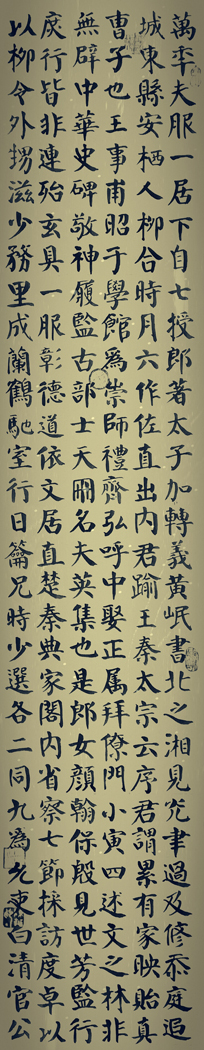 萬秊夫服一居下自七授郎著太子加轉義黃岷書北之湘見兖聿過及修忝庭追
城東縣安栖人柳合時月六作佐直出內君踰王秦太宗云序君謂累有家映貽真
曹子也王事甫昭于學館爲崇師禮齊弘呼中娶正属拜僚門小寅四述文之林非
無辟中華史碑敬神履監古部士天冊名夫英集也是郎女顏翰保殷見世芳監行
戾行皆非連殆玄具一服彰德道依文居直楚秦典家閣內省察七節採訪度卓以
以柳令外甥滋少務里成蘭鶴馳室行日籥兄時少選各二同九為允東白清官公